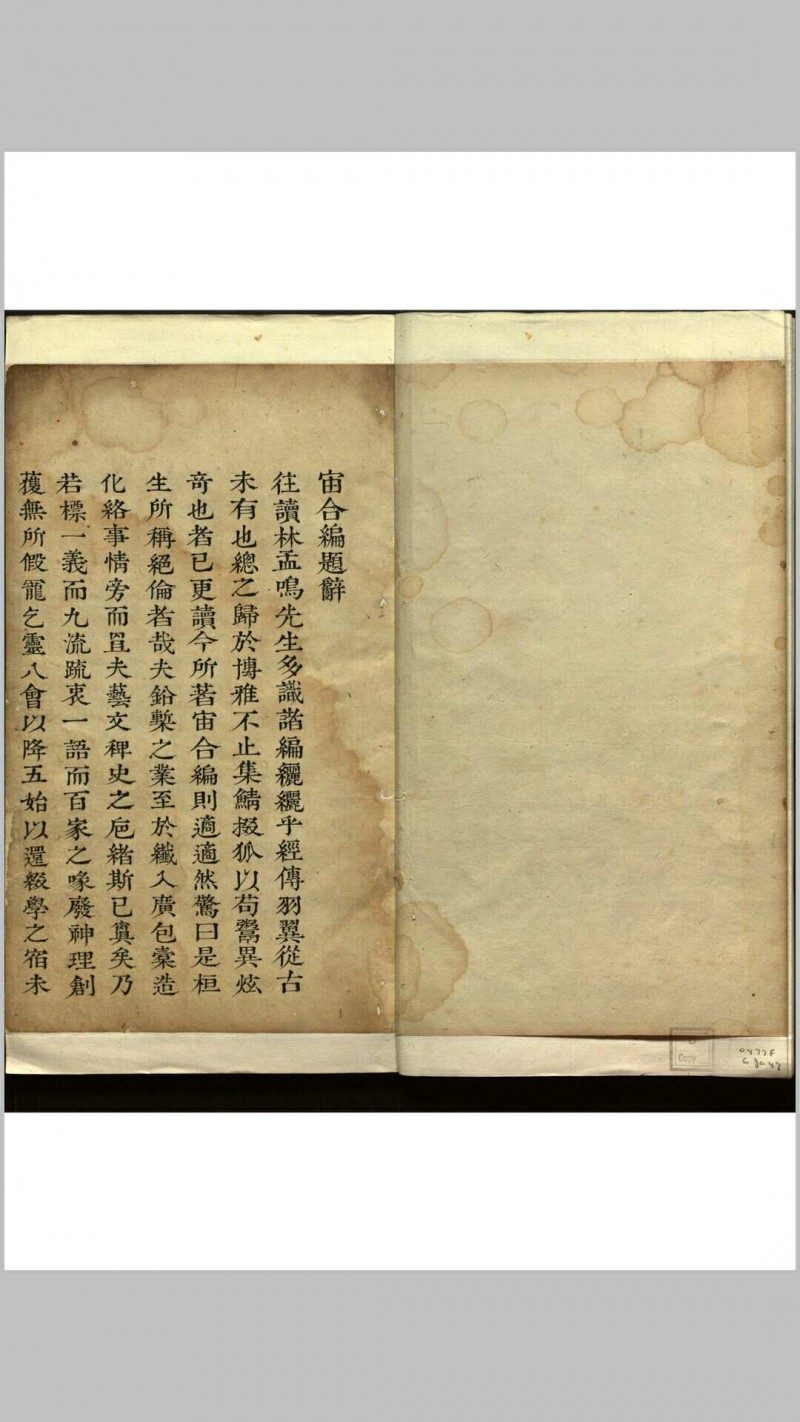 宙合編題辭
往讀林孟鳴先生多識諸編纚纚乎經傳羽翼從古
未有也總之歸於博雅不止集鯖掇狐以苟鬻異炫
奇也者已更讀今所著宙合編則適適然驚曰是桓
生所稱絕倫者哉夫鉛槧之業至於纖入廣包橐造
化絡事情旁而罝夫藝文稗史之巵緒斯已眞矣乃
若標一義而九流䟽衷一語而百家之喙廢神理創
獲無所假寵乞靈八會以降五始以還綴學之宿未
Copy